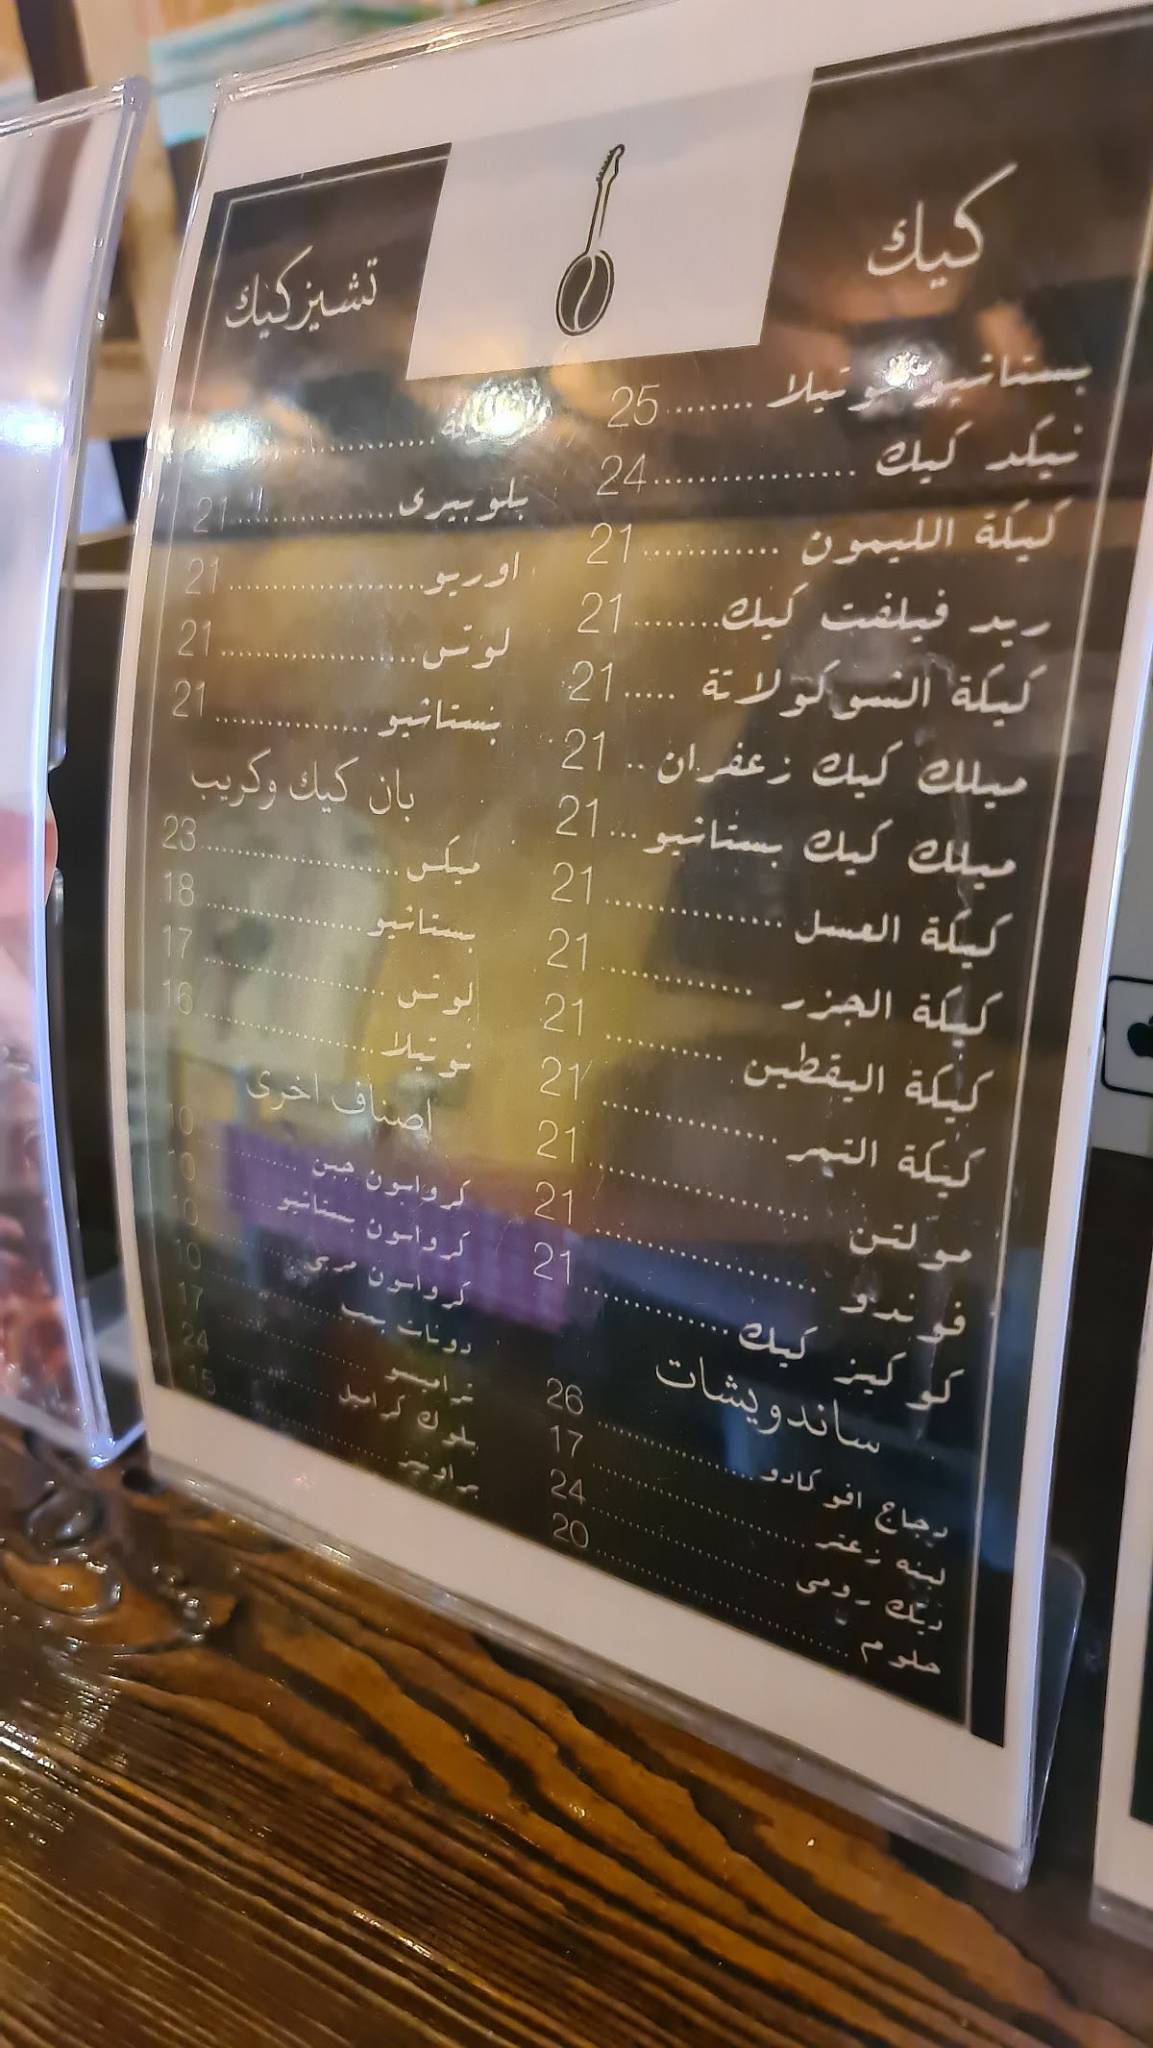 كيك
بستاشيو نوتيلا ........ 25
نيكد كيك ................ 24
كيكة الليمون ............ 21
ريد فيلفت كيك ........ 21
كيكة الشوكولاتة ..... 21
ميلك كيك زعفران .. 21
ميلك كيك بستاشيو ... 21
كيكة العسل ................ 21
كيكة الجزر ............. 21
كيكة اليقطين ............ 21
كيكة التمر ................ 21
مولتن .................... 21
فوندو .................... 21
كوكيز كيك ............. 21
ساندويشات
دجاج افوكادو ............... 26
لبنه زعتر .................... 17
ديك رومي .................... 24
حلوم .......................... 20
تشيزكيك
بلوبيري ................ 21
اوريو .................... 21
لوتس .................... 21
بستاشيو ................ 21
بان كيك وكريب
ميكس .................... 23
بستاشيو ................ 18
لوتس .................... 17
نوتيلا .................... 16
اصناف اخرى
كرواسون جبن ............ 10
كرواسون بستاشيو ........ 10
كرواسون مربى ............ 10
دونات بيب ................ 10
تراميسو .................... 17
بلوك كراميل ............ 24
براونيز .................... 15